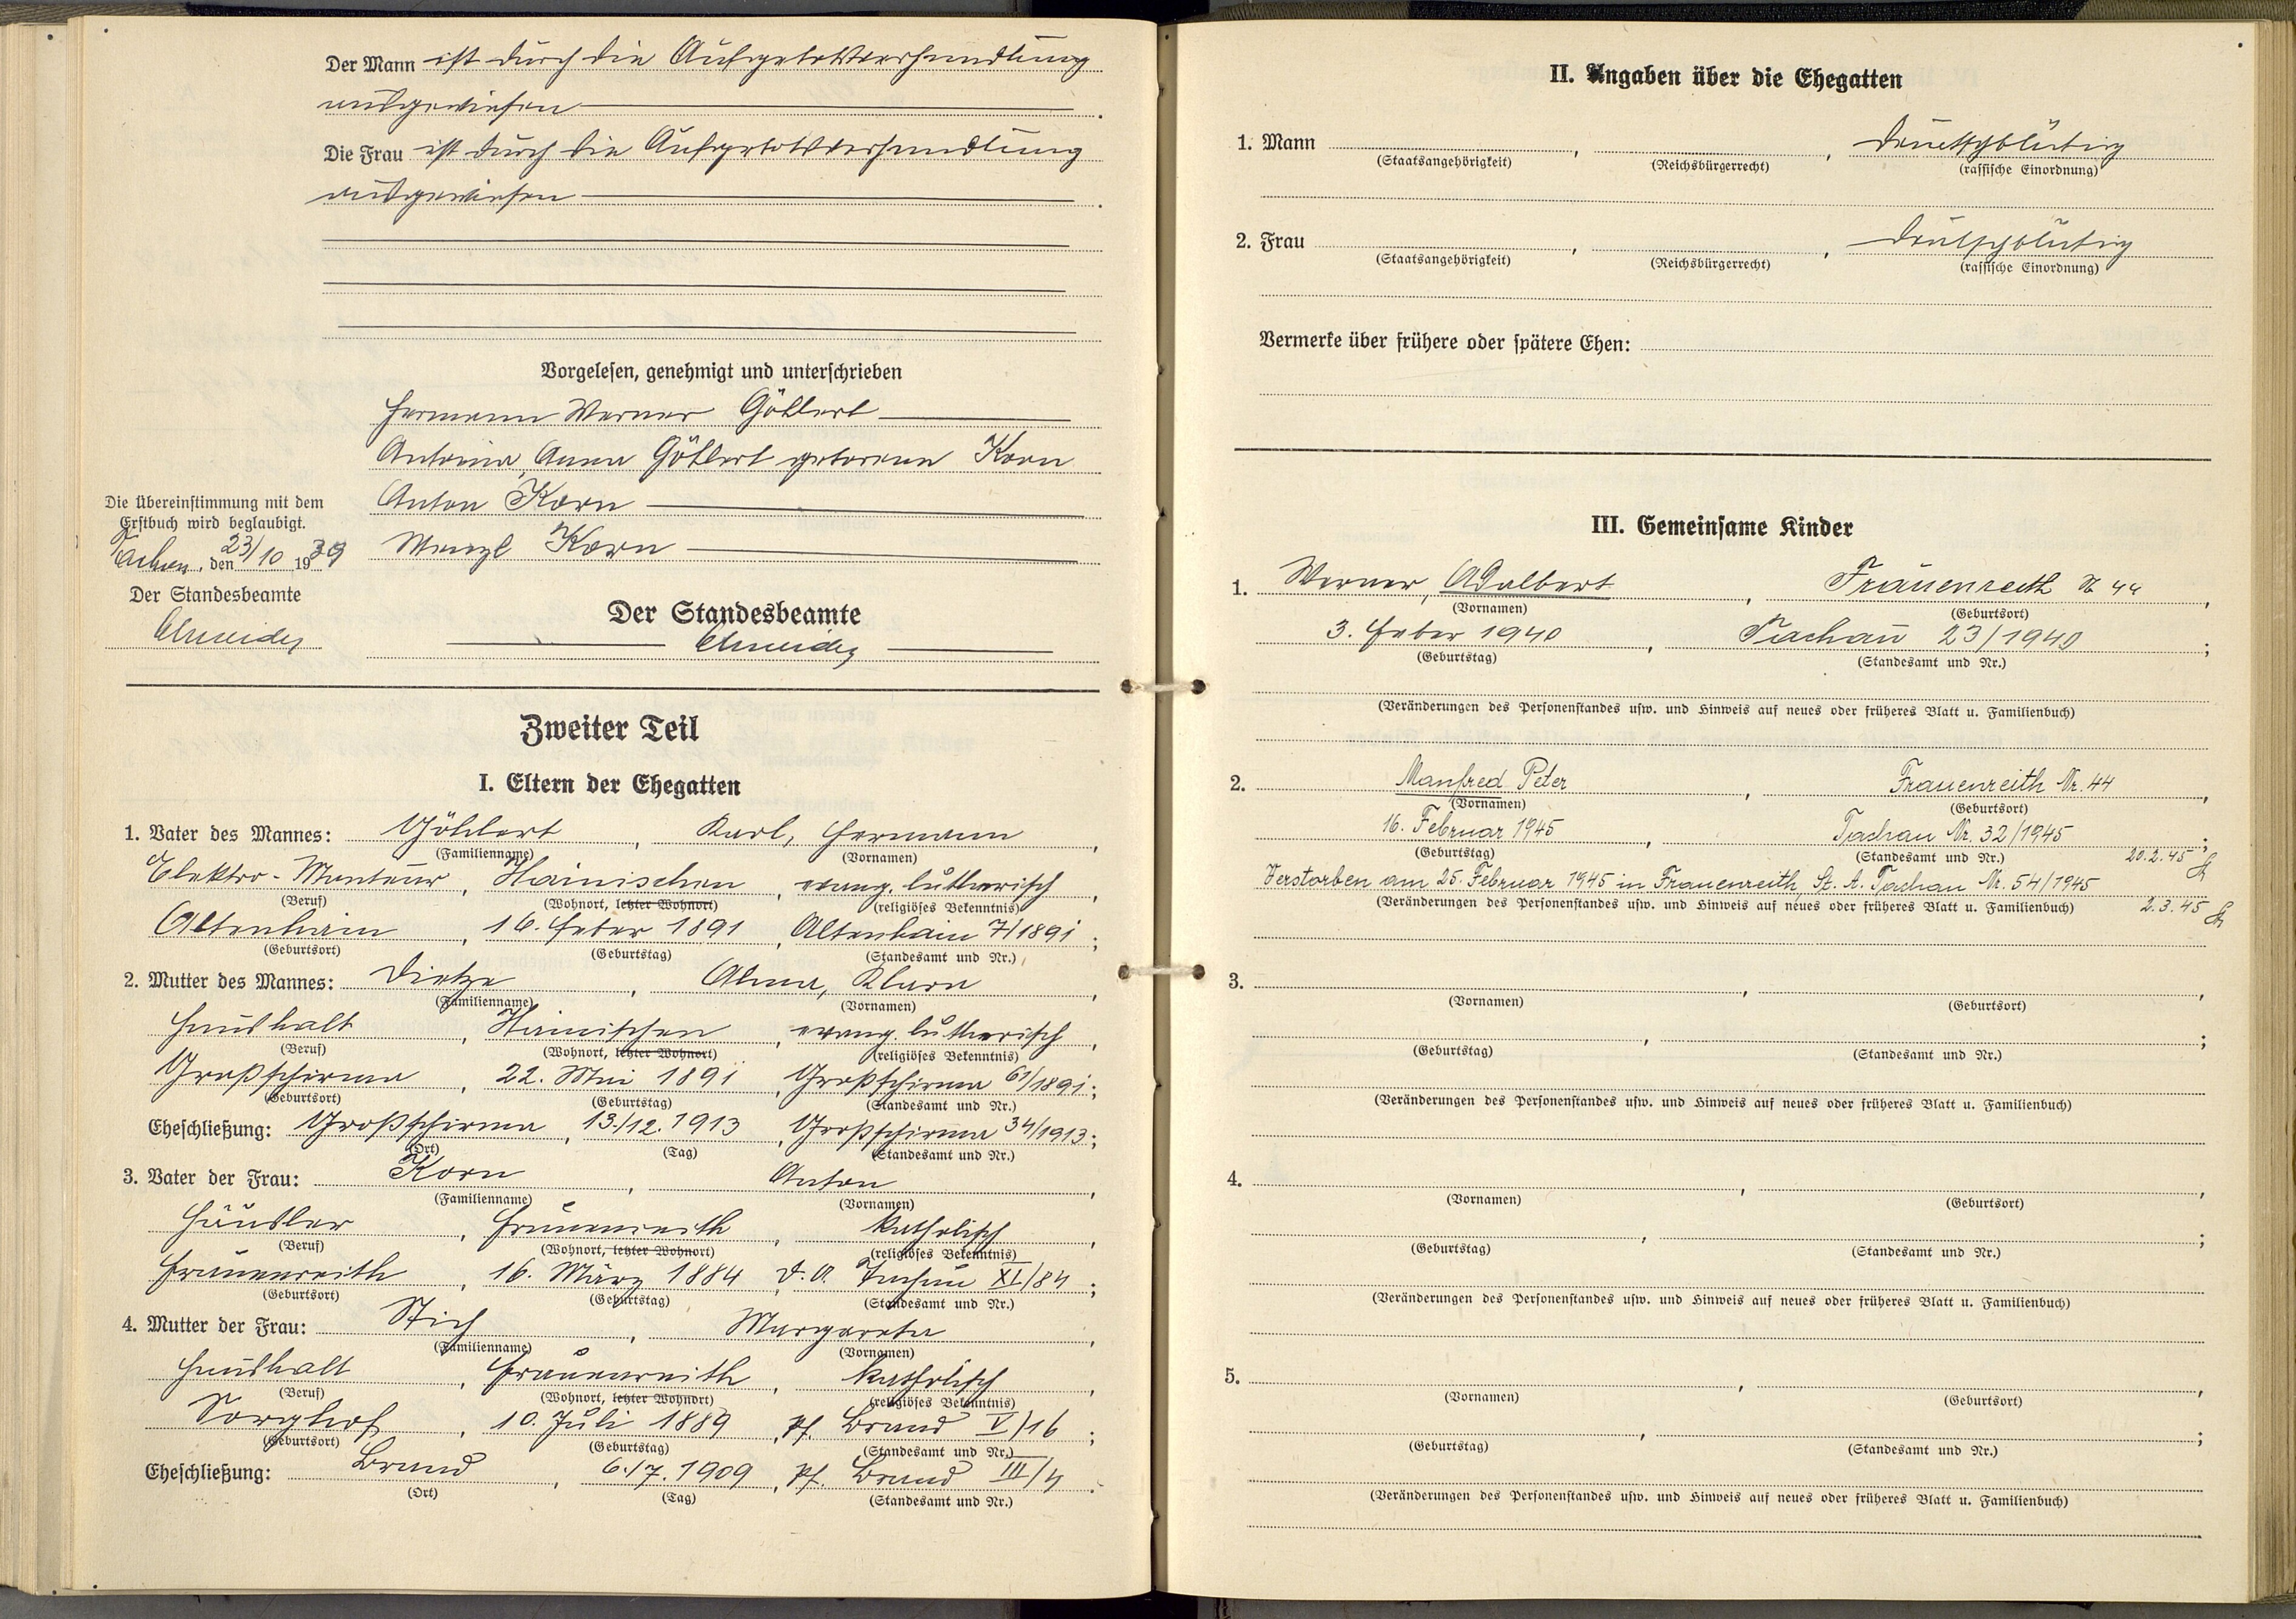 Der Mann ist durch die Aufgebotsverhandlung
ausgewiesen
Die Frau ist durch die Aufgebotsverhandlung
ausgewiesen
Vorgelesen, genehmigt und unterschrieben
Hermann Werner Göhlert
Antonia, Anna Göhlert geborene Korn
Anton Korn
Wenzl Korn
Die Übereinstimmung mit dem
Erstbuch wird beglaubigt.
den 23/10 1939
Der Standesbeamte
Der Standesbeamte
Zweiter Teil
I. Eltern der Ehegatten
1. Vater des Mannes: Göhlert, Karl, Hermann,
(Familienname) (Vornamen)
Elektro-Monteur, Hainischen, evang. lutherisch,
(Beruf) (Wohnort, letzter Wohnort) (religiöses Bekenntnis)
Altenhain, 16. Feber 1891, Altenhain 7/1891;
(Geburtsort) (Geburtstag) (Standesamt und Nr.)
2. Mutter des Mannes: Dietze, Alma, Klara,
(Familienname) (Vornamen)
Haushalt, Hainischen, evang. lutherisch,
(Beruf) (Wohnort, letzter Wohnort) (religiöses Bekenntnis)
Großschirma, 22. Mai 1891, Großschirma 61/1891;
(Geburtsort) (Geburtstag) (Standesamt und Nr.)
Eheschließung: Großschirma, 13./12.1913, Großschirma 34/1913;
(Ort) (Tag) (Standesamt und Nr.)
3. Vater der Frau: Korn, Anton,
(Familienname) (Vornamen)
Häusler, Frauenreith, katholisch,
(Beruf) (Wohnort, letzter Wohnort) (religiöses Bekenntnis)
Frauenreith, 16. März 1884, D. A. Tachau XI/84;
(Geburtsort) (Geburtstag) (Standesamt und Nr.)
4. Mutter der Frau: Stich, Margareta,
(Familienname) (Vornamen)
Haushalt, Frauenreith, katholisch,
(Beruf) (Wohnort, letzter Wohnort) (religiöses Bekenntnis)
Sorghof, 10. Juli 1889, Pf. Brand V/16;
(Geburtsort) (Geburtstag) (Standesamt und Nr.)
Eheschließung: Brand, 6./7.1909, Pf. Brand III/4.
(Ort) (Tag) (Standesamt und Nr.)
II. Angaben über die Ehegatten
1. Mann , , deutschblütig
(Staatsangehörigkeit) (Reichsbürgerrecht) (rassische Einordnung)
2. Frau , , deutschblütig
(Staatsangehörigkeit) (Reichsbürgerrecht) (rassische Einordnung)
Vermerke über frühere oder spätere Ehen:
III. Gemeinsame Kinder
1. Werner, Adalbert, Frauenreith № 44,
(Vornamen) (Geburtsort)
3. Feber 1940, Tachau 23/1940;
(Geburtstag) (Standesamt und Nr.)
(Veränderungen des Personenstandes usw. und Hinweis auf neues oder früheres Blatt u. Familienbuch)
2. Manfred Peter, Frauenreith Nr. 44,
(Vornamen) (Geburtsort)
16. Februar 1945, Tachau Nr. 32/1945;
(Geburtstag) (Standesamt und Nr.) 20.2.45
Verstorben am 25. Februar 1945 in Frauenreith, St. A. Tachau Nr. 54/1945
(Veränderungen des Personenstandes usw. und Hinweis auf neues oder früheres Blatt u. Familienbuch) 2.3.45
3. , ,
(Vornamen) (Geburtsort)
, ;
(Geburtstag) (Standesamt und Nr.)
(Veränderungen des Personenstandes usw. und Hinweis auf neues oder früheres Blatt u. Familienbuch)
4. , ,
(Vornamen) (Geburtsort)
, ;
(Geburtstag) (Standesamt und Nr.)
(Veränderungen des Personenstandes usw. und Hinweis auf neues oder früheres Blatt u. Familienbuch)
5. , ,
(Vornamen) (Geburtsort)
, ;
(Geburtstag) (Standesamt und Nr.)
(Veränderungen des Personenstandes usw. und Hinweis auf neues oder früheres Blatt u. Familienbuch)